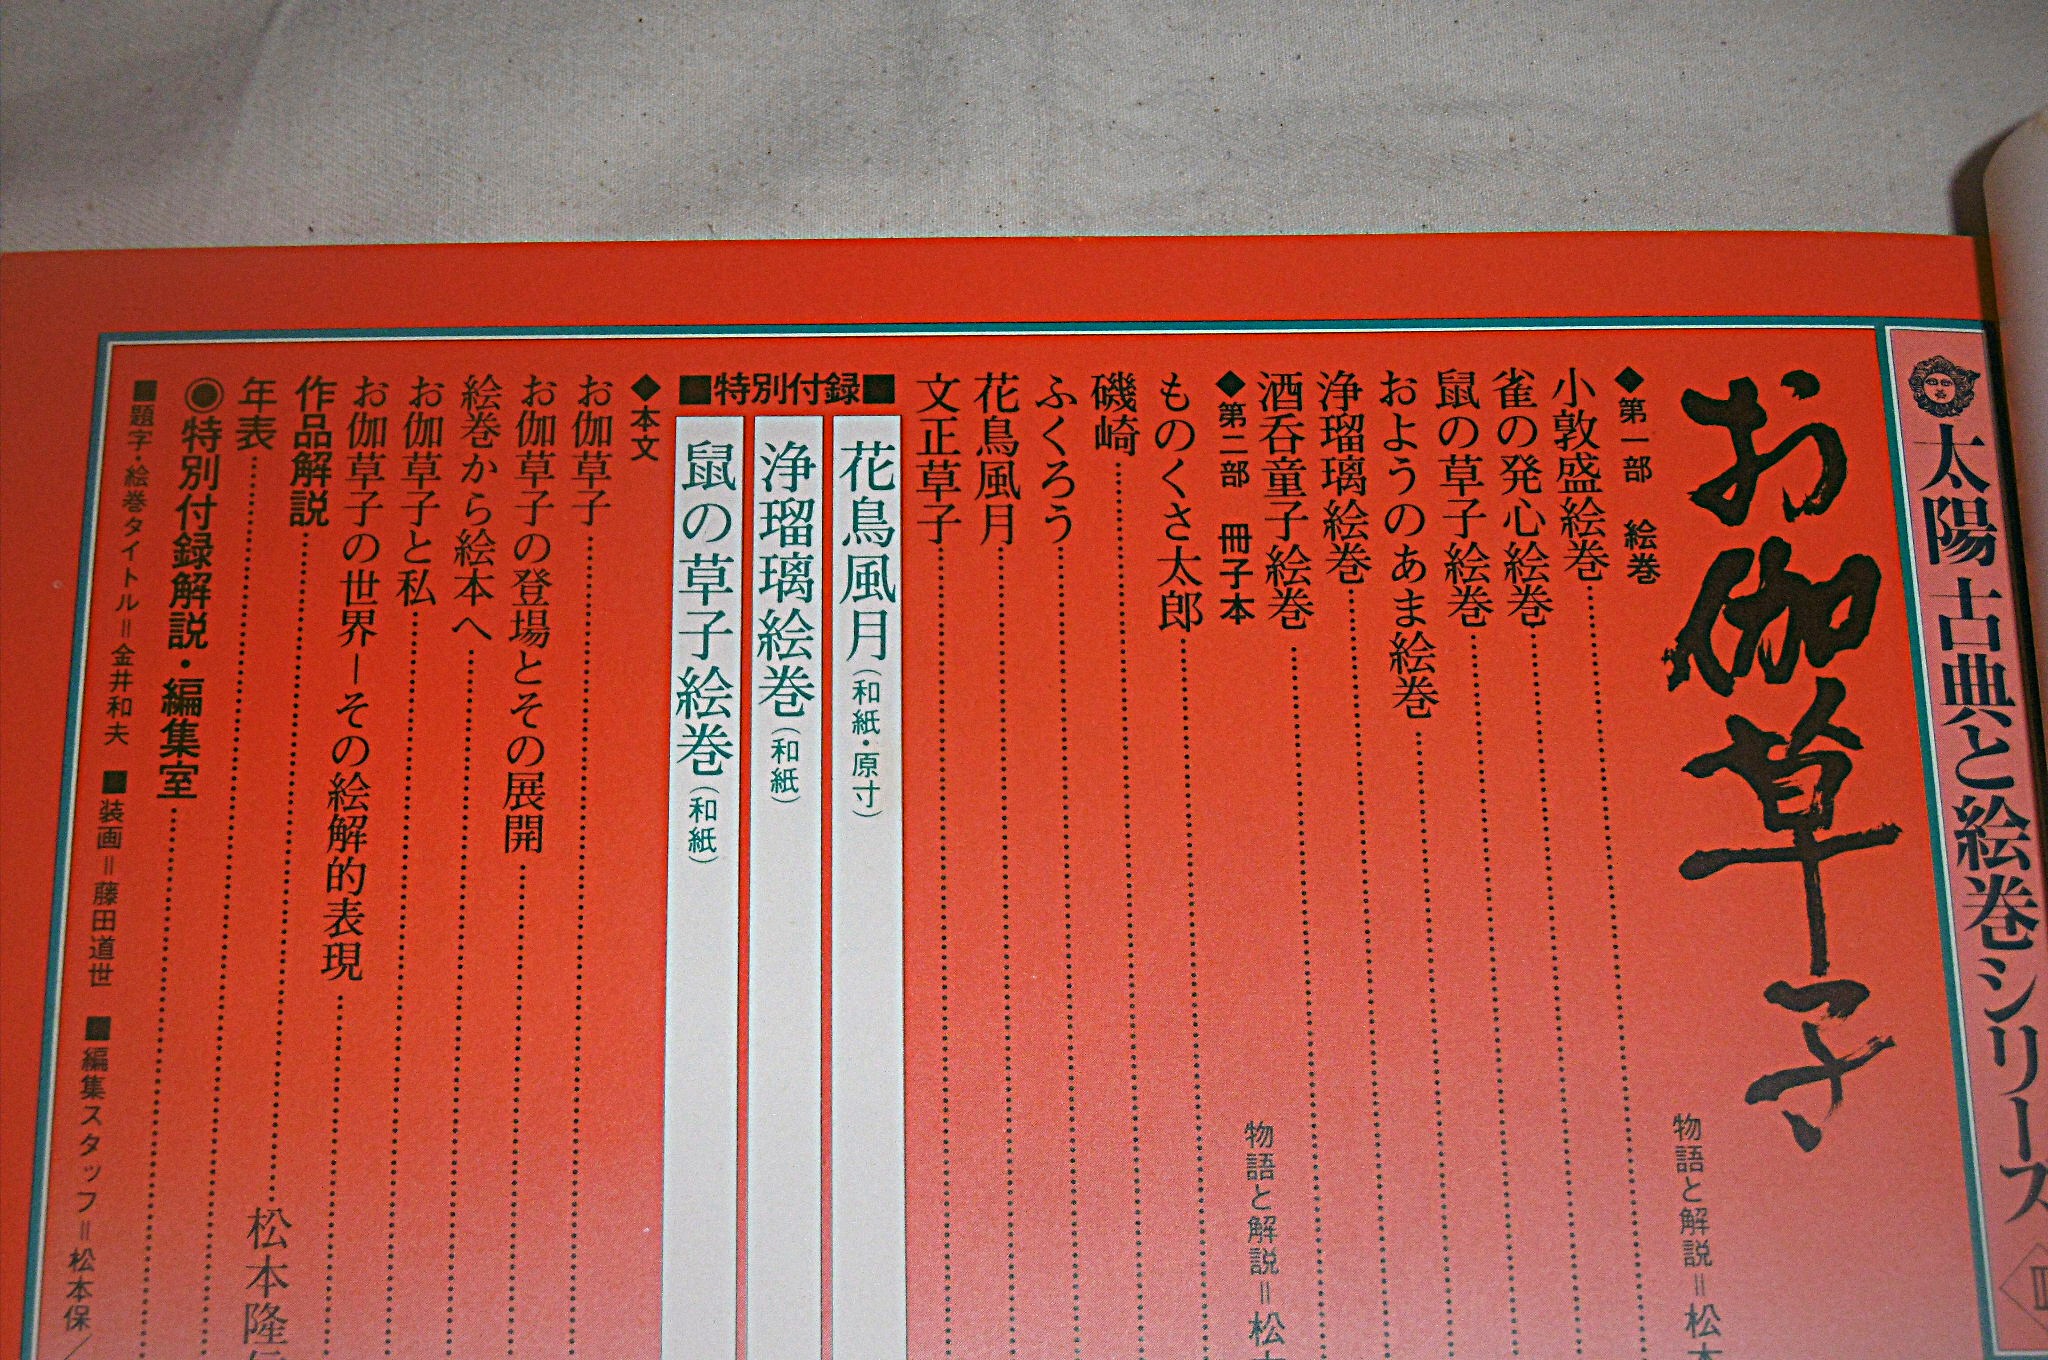 太陽 古典と絵巻シリーズ
お伽草子
物語と解説=松
◆第一部 絵巻
小敦盛絵巻
雀の発心絵巻
鼠の草子絵巻
おようのあま絵巻
浄瑠璃絵巻
酒呑童子絵巻
◆第二部 冊子本
物語と解説=松
ものくさ太郎
磯崎
ふくろう
花鳥風月
文正草子
■特別付録■
花鳥風月(和紙・原寸)
浄瑠璃絵巻(和紙)
鼠の草子絵巻(和紙)
◆本文
お伽草子
お伽草子の登場とその展開
絵巻から絵本へ
お伽草子と私
お伽草子の世界—その絵解的表現
作品解説 松本隆
年表
◉特別付録解説・編集室
■題字・絵巻タイトル=金井和夫 ■装画=藤田道世 ■編集スタッフ=松本保/